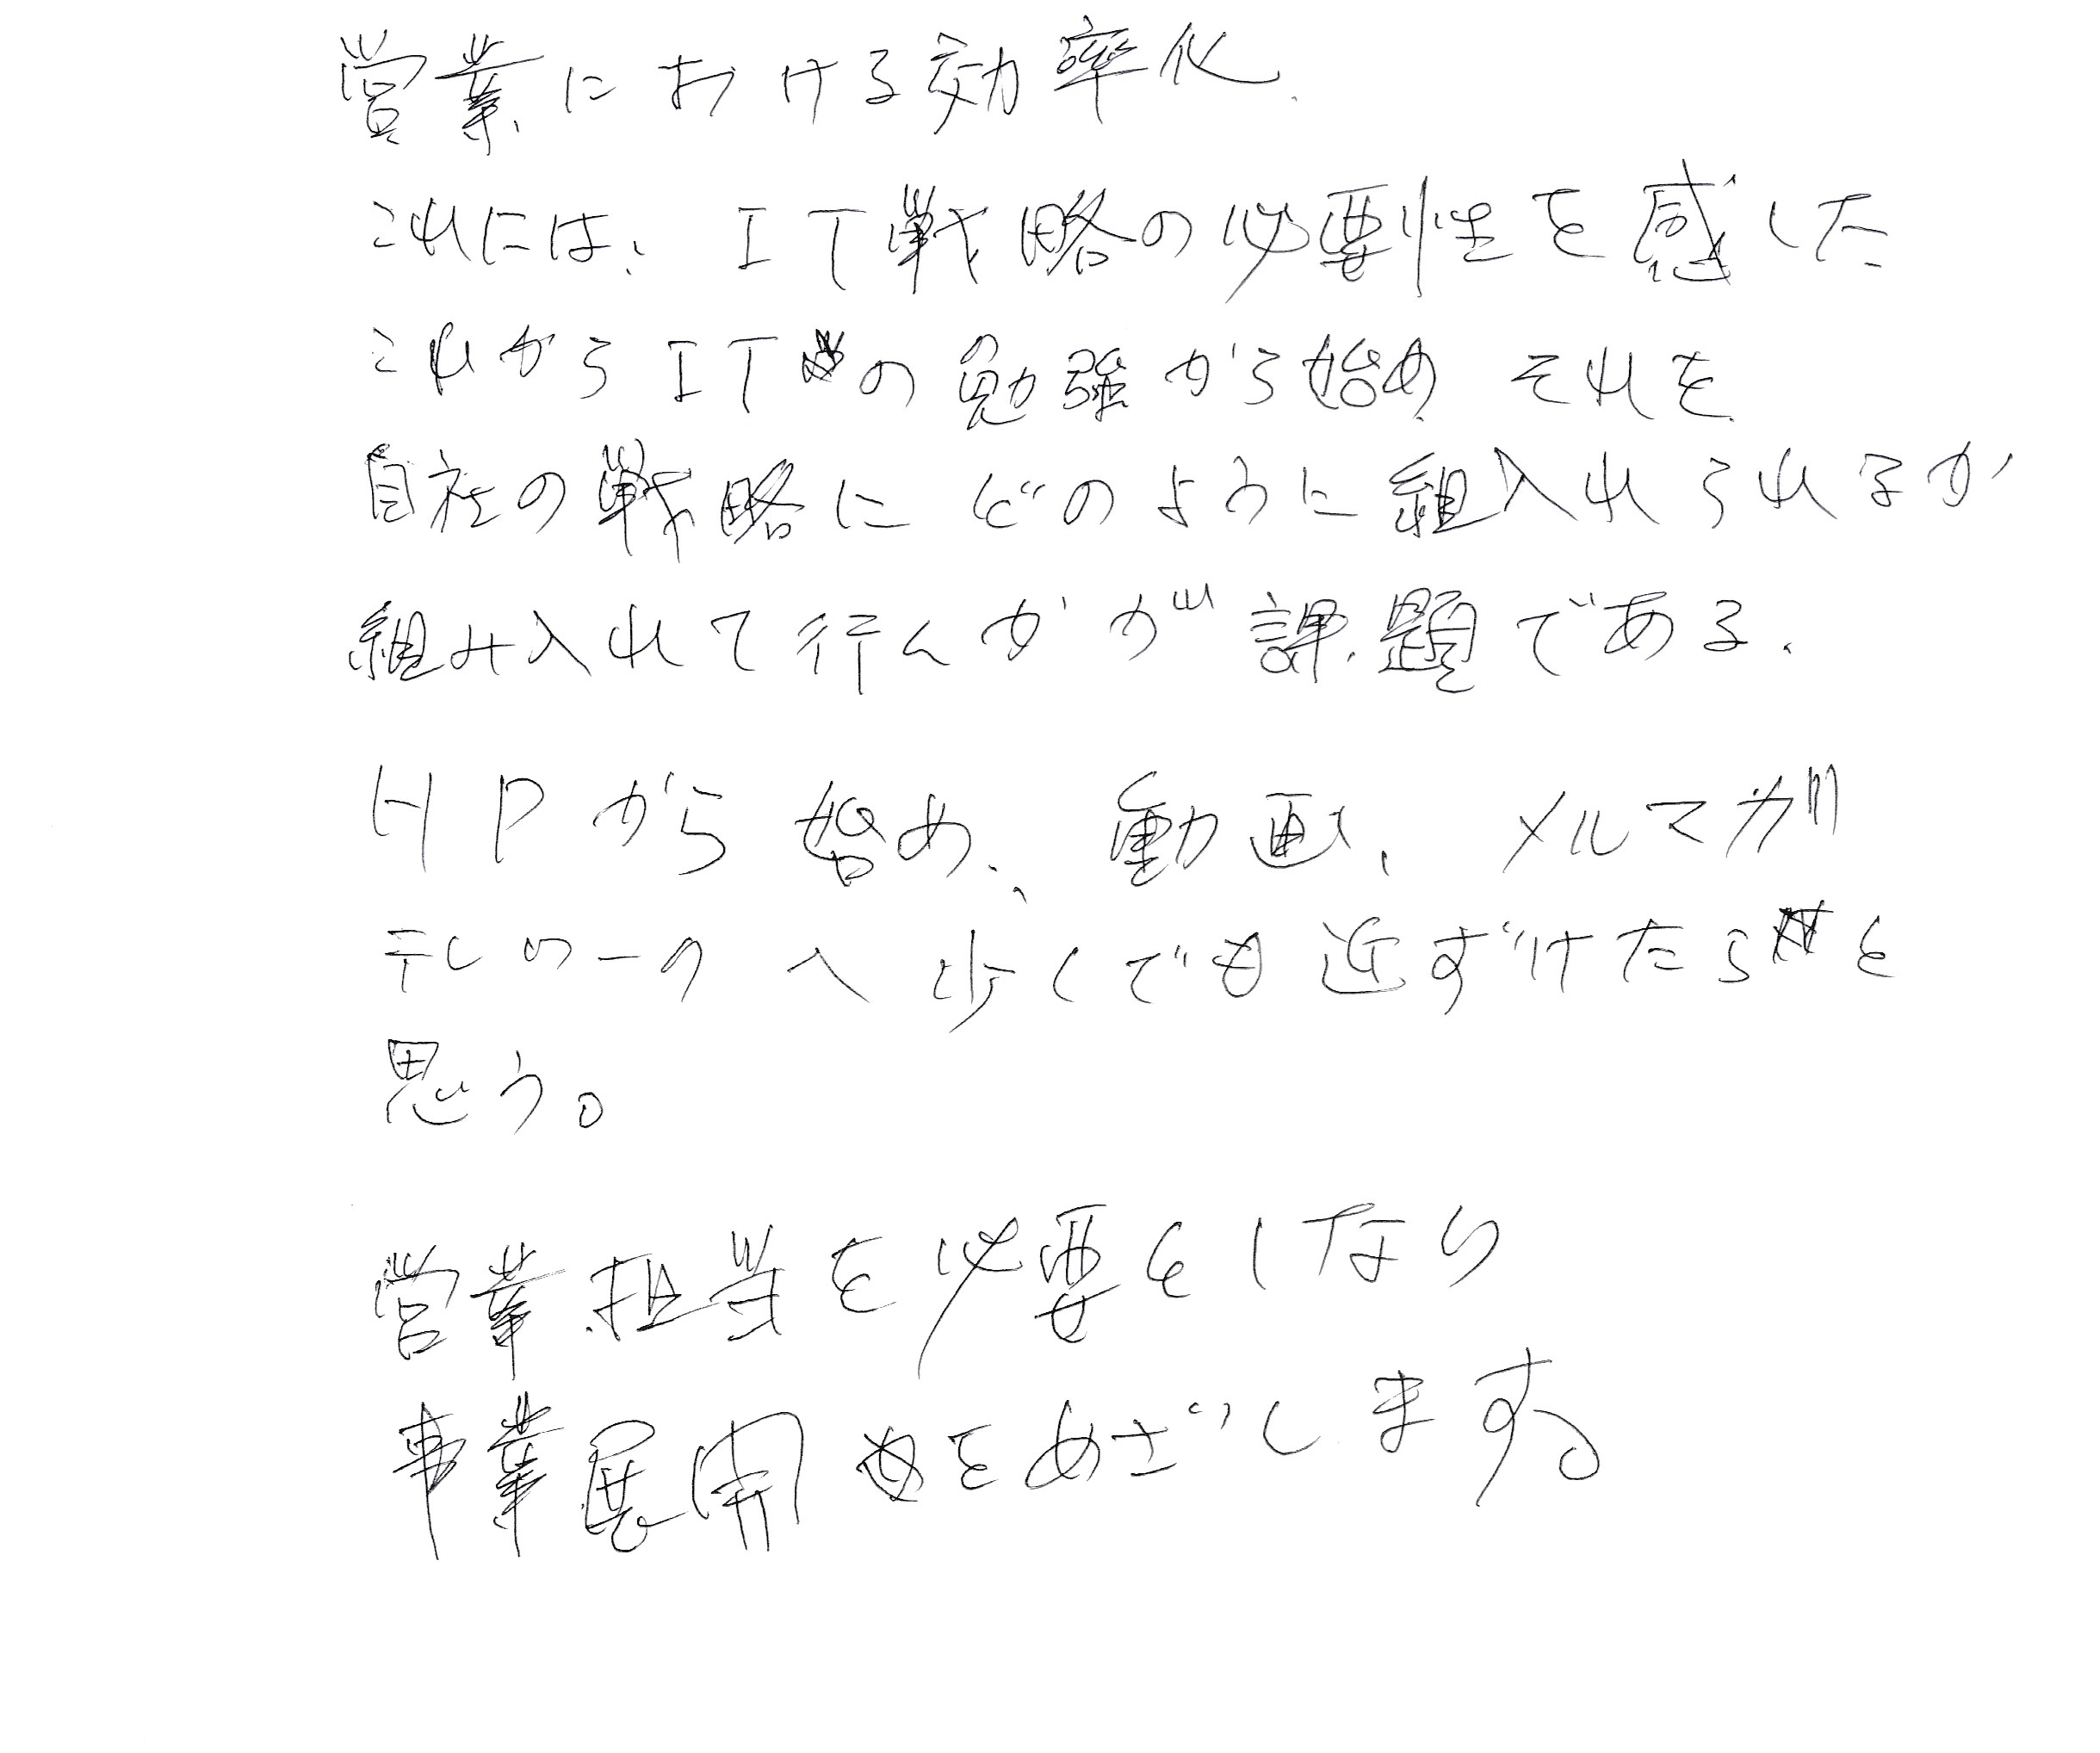 営業における効率化.
これには、IT戦略の必要性を感した
これからITの勉強から始め それを
自社の戦略にどのように組入れられるか
組み入れて行くかが課題である.
HPから始め、動画、メルマガ
テレワークへ少くでも近ずけたらと
思う。
営業担当を必要をしない
事業展開をめざします。